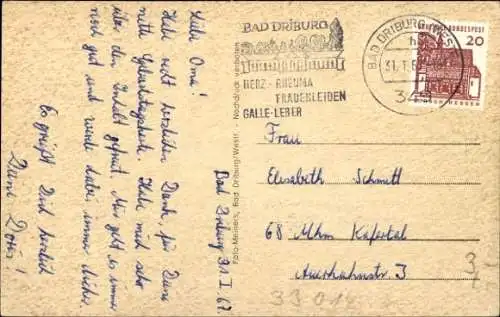 Liebe Oma!
Habe recht herzlichen Dank, für Deine
nette Geburtstagskarte. Habe mich sehr
über den Inhalt gefreut. Mir geht es immer
noch gut und werde dabei immer
Es grüßt Dich herzlich
Deine Doris!
Bad Driburg 31 I 67
Foto-Meiners, Bad Driburg/Westf. - Nachdruck verboten
BAD DRIBURG
HERZ - RHEUMA
FRAUENLEIDEN
GALLE-LEBER
BAD DRIBURG (WESTF)
DEUTSCHE BUNDESPOST
20
Frau
Elisabeth Schmitt
68 Mhm Käfertal
Auerhahnstr. 3
33 014
3,-